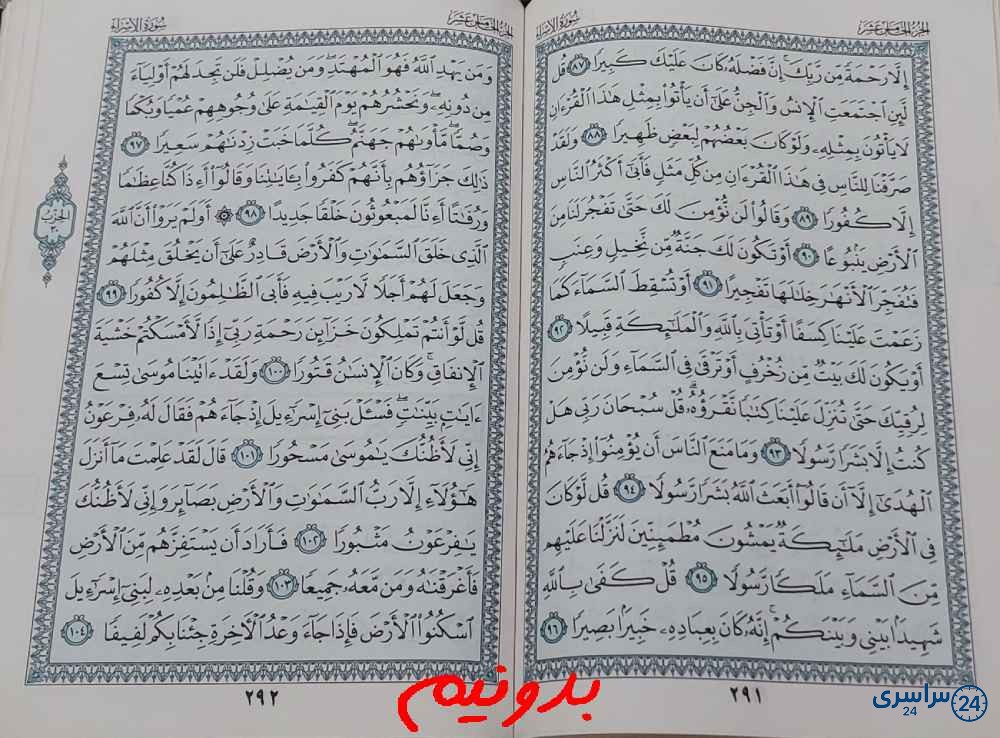 الجزء الخامس عشر
سورة الإسراء
إِلَّا رَحْمَةً مِّن رَّبِّكَ ۚ إِنَّ فَضْلَهُۥ كَانَ عَلَيْكَ كَبِيرًا ٨٧ قُل
لَّئِنِ ٱجْتَمَعَتِ ٱلْإِنسُ وَٱلْجِنُّ عَلَىٰٓ أَن يَأْتُوا۟ بِمِثْلِ هَٰذَا ٱلْقُرْءَانِ
لَا يَأْتُونَ بِمِثْلِهِۦ وَلَوْ كَانَ بَعْضُهُمْ لِبَعْضٍ ظَهِيرًا ٨٨ وَلَقَدْ
صَرَّفْنَا لِلنَّاسِ فِى هَٰذَا ٱلْقُرْءَانِ مِن كُلِّ مَثَلٍ فَأَبَىٰٓ أَكْثَرُ ٱلنَّاسِ
إِلَّا كُفُورًا ٨٩ وَقَالُوا۟ لَن نُّؤْمِنَ لَكَ حَتَّىٰ تَفْجُرَ لَنَا مِنَ
ٱلْأَرْضِ يَنۢبُوعًا ٩٠ أَوْ تَكُونَ لَكَ جَنَّةٌ مِّن نَّخِيلٍ وَعِنَبٍ
فَتُفَجِّرَ ٱلْأَنْهَٰرَ خِلَٰلَهَا تَفْجِيرًا ٩١ أَوْ تُسْقِطَ ٱلسَّمَآءَ كَمَا
زَعَمْتَ عَلَيْنَا كِسَفًا أَوْ تَأْتِىَ بِٱللَّهِ وَٱلْمَلَٰٓئِكَةِ قَبِيلًا ٩٢
أَوْ يَكُونَ لَكَ بَيْتٌ مِّن زُخْرُفٍ أَوْ تَرْقَىٰ فِى ٱلسَّمَآءِ وَلَن نُّؤْمِنَ
لِرُقِيِّكَ حَتَّىٰ تُنَزِّلَ عَلَيْنَا كِتَٰبًا نَّقْرَؤُهُۥ ۗ قُلْ سُبْحَانَ رَبِّى هَلْ
كُنتُ إِلَّا بَشَرًا رَّسُولًا ٩٣ وَمَا مَنَعَ ٱلنَّاسَ أَن يُؤْمِنُوٓا۟ إِذْ جَآءَهُمُ
ٱلْهُدَىٰٓ إِلَّآ أَن قَالُوٓا۟ أَبَعَثَ ٱللَّهُ بَشَرًا رَّسُولًا ٩٤ قُل لَّوْ كَانَ
فِى ٱلْأَرْضِ مَلَٰٓئِكَةٌ يَمْشُونَ مُطْمَئِنِّينَ لَنَزَّلْنَا عَلَيْهِم
مِّنَ ٱلسَّمَآءِ مَلَكًا رَّسُولًا ٩٥ قُلْ كَفَىٰ بِٱللَّهِ
شَهِيدًۢا بَيْنِى وَبَيْنَكُمْ ۚ إِنَّهُۥ كَانَ بِعِبَادِهِۦ خَبِيرًۢا بَصِيرًا ٩٦
٢٩١
الجزء الخامس عشر
سورة الإسراء
وَمَن يَهْدِ ٱللَّهُ فَهُوَ ٱلْمُهْتَدِ ۖ وَمَن يُضْلِلْ فَلَن تَجِدَ لَهُمْ أَوْلِيَآءَ
مِن دُونِهِۦ ۖ وَنَحْشُرُهُمْ يَوْمَ ٱلْقِيَٰمَةِ عَلَىٰ وُجُوهِهِمْ عُمْيًا وَبُكْمًا
وَصُمًّا ۖ مَّأْوَىٰهُمْ جَهَنَّمُ ۖ كُلَّمَا خَبَتْ زِدْنَٰهُمْ سَعِيرًا ٩٧
ذَٰلِكَ جَزَآؤُهُم بِأَنَّهُمْ كَفَرُوا۟ بِـَٔايَٰتِنَا وَقَالُوٓا۟ أَءِذَا كُنَّا عِظَٰمًا
وَرُفَٰتًا أَءِنَّا لَمَبْعُوثُونَ خَلْقًا جَدِيدًا ٩٨ ۞ أَوَلَمْ يَرَوْا۟ أَنَّ ٱللَّهَ
ٱلَّذِى خَلَقَ ٱلسَّمَٰوَٰتِ وَٱلْأَرْضَ قَادِرٌ عَلَىٰٓ أَن يَخْلُقَ مِثْلَهُمْ
وَجَعَلَ لَهُمْ أَجَلًا لَّا رَيْبَ فِيهِ فَأَبَى ٱلظَّٰلِمُونَ إِلَّا كُفُورًا ٩٩
قُل لَّوْ أَنتُمْ تَمْلِكُونَ خَزَآئِنَ رَحْمَةِ رَبِّىٓ إِذًا لَّأَمْسَكْتُمْ خَشْيَةَ
ٱلْإِنفَاقِ ۚ وَكَانَ ٱلْإِنسَٰنُ قَتُورًا ١٠٠ وَلَقَدْ ءَاتَيْنَا مُوسَىٰ تِسْعَ
ءَايَٰتٍۭ بَيِّنَٰتٍ ۖ فَسْـَٔلْ بَنِىٓ إِسْرَٰٓءِيلَ إِذْ جَآءَهُمْ فَقَالَ لَهُۥ فِرْعَوْنُ
إِنِّى لَأَظُنُّكَ يَٰمُوسَىٰ مَسْحُورًا ١٠١ قَالَ لَقَدْ عَلِمْتَ مَآ أَنزَلَ
هَٰٓؤُلَآءِ إِلَّا رَبُّ ٱلسَّمَٰوَٰتِ وَٱلْأَرْضِ بَصَآئِرَ وَإِنِّى لَأَظُنُّكَ
يَٰفِرْعَوْنُ مَثْبُورًا ١٠٢ فَأَرَادَ أَن يَسْتَفِزَّهُم مِّنَ ٱلْأَرْضِ
فَأَغْرَقْنَٰهُ وَمَن مَّعَهُۥ جَمِيعًا ١٠٣ وَقُلْنَا مِنۢ بَعْدِهِۦ لِبَنِىٓ إِسْرَٰٓءِيلَ
ٱسْكُنُوا۟ ٱلْأَرْضَ فَإِذَا جَآءَ وَعْدُ ٱلْءَاخِرَةِ جِئْنَا بِكُمْ لَفِيفًا ١٠٤
الحزب
٣٠
٢٩٢
بدونیم
سراسری 24
24